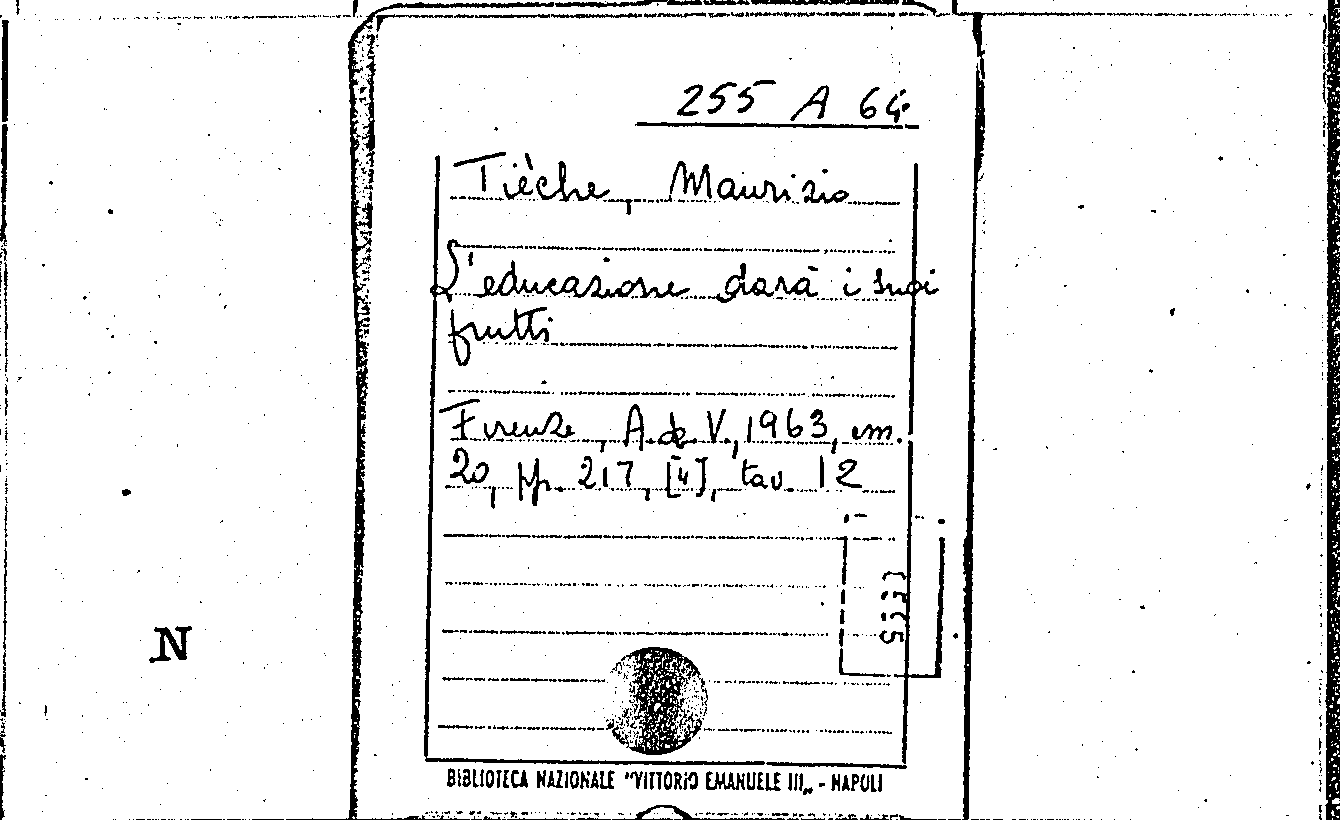 255 A 64
Tièche, Maurizio
L'educazione darà i suoi
frutti
Firenze, A.d.V., 1963, cm.
20, pp. 217, [4], tav. 12
N
BIBLIOTECA NAZIONALE "VITTORIO EMANUELE III„ - NAPOLI